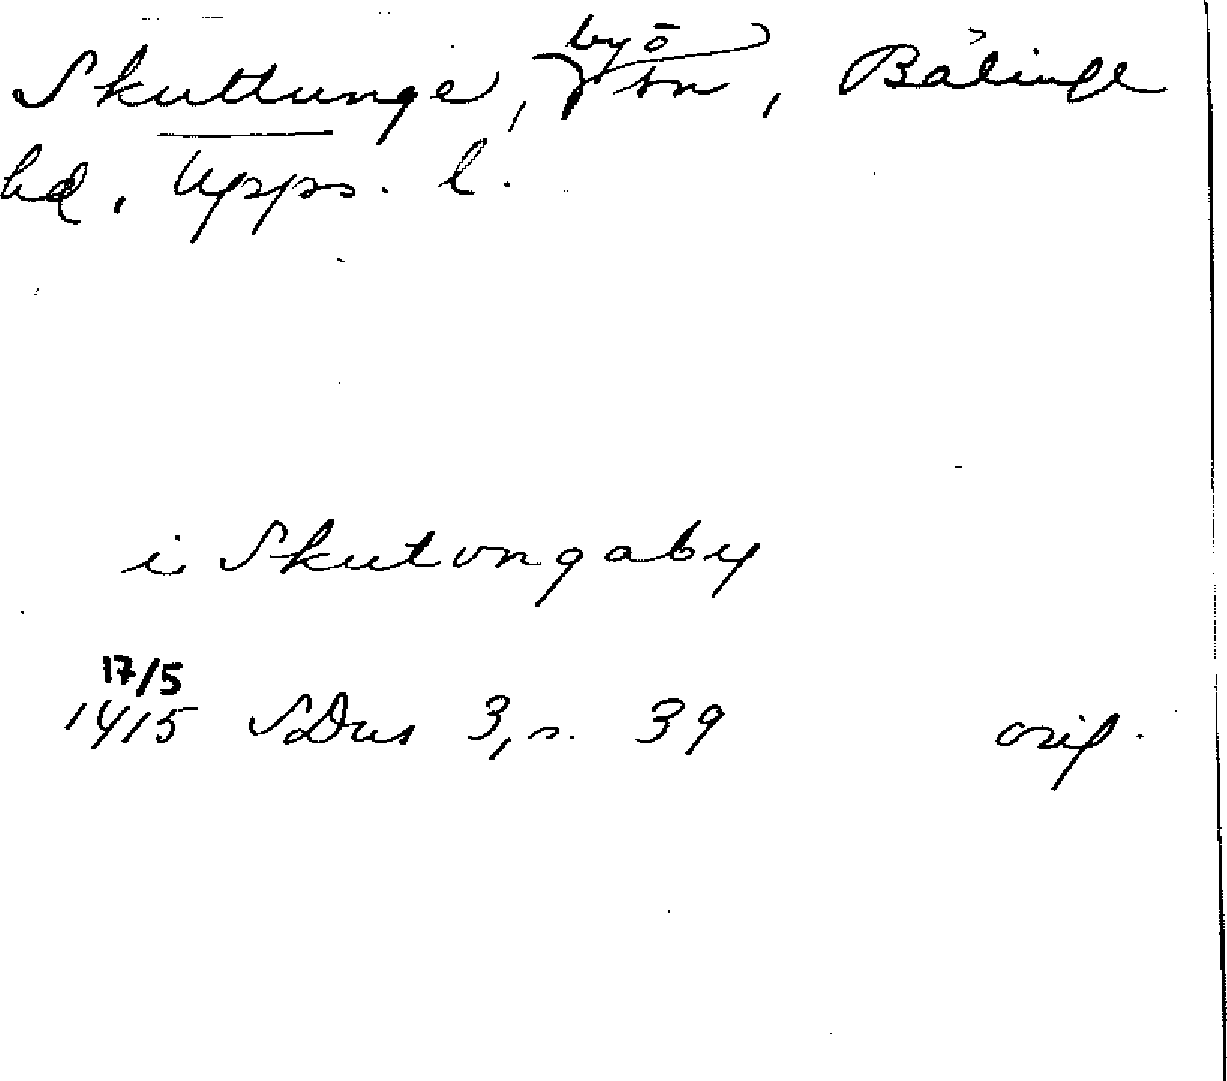 Skuttunge, by o sn, Bälinge
hd, Upps. l.
i Skutongaby
17/5
1415 SDns 3, s. 39 orig.